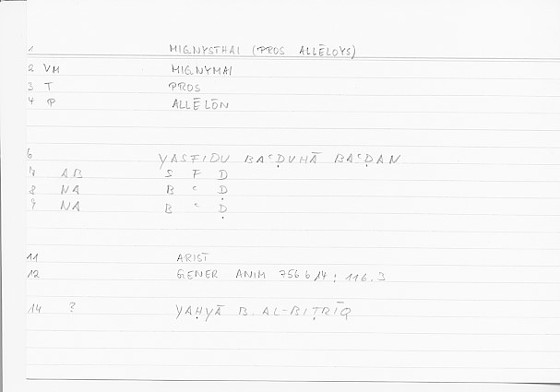 1 MIGNYSTHAI (PROS ALLĒLOYS)
2 VM MIGNYMAI
3 T PROS
4 P ALLĒLŌN
6 YASFIDU BAʿḌUHĀ BAʿḌAN
7 AB S F D
8 NA B ʿ Ḍ
9 NA B ʿ Ḍ
11 ARIST
12 GENER ANIM 756 b 14 : 116.3
14 ? YAḤYĀ B. AL-BIṬRĪQ